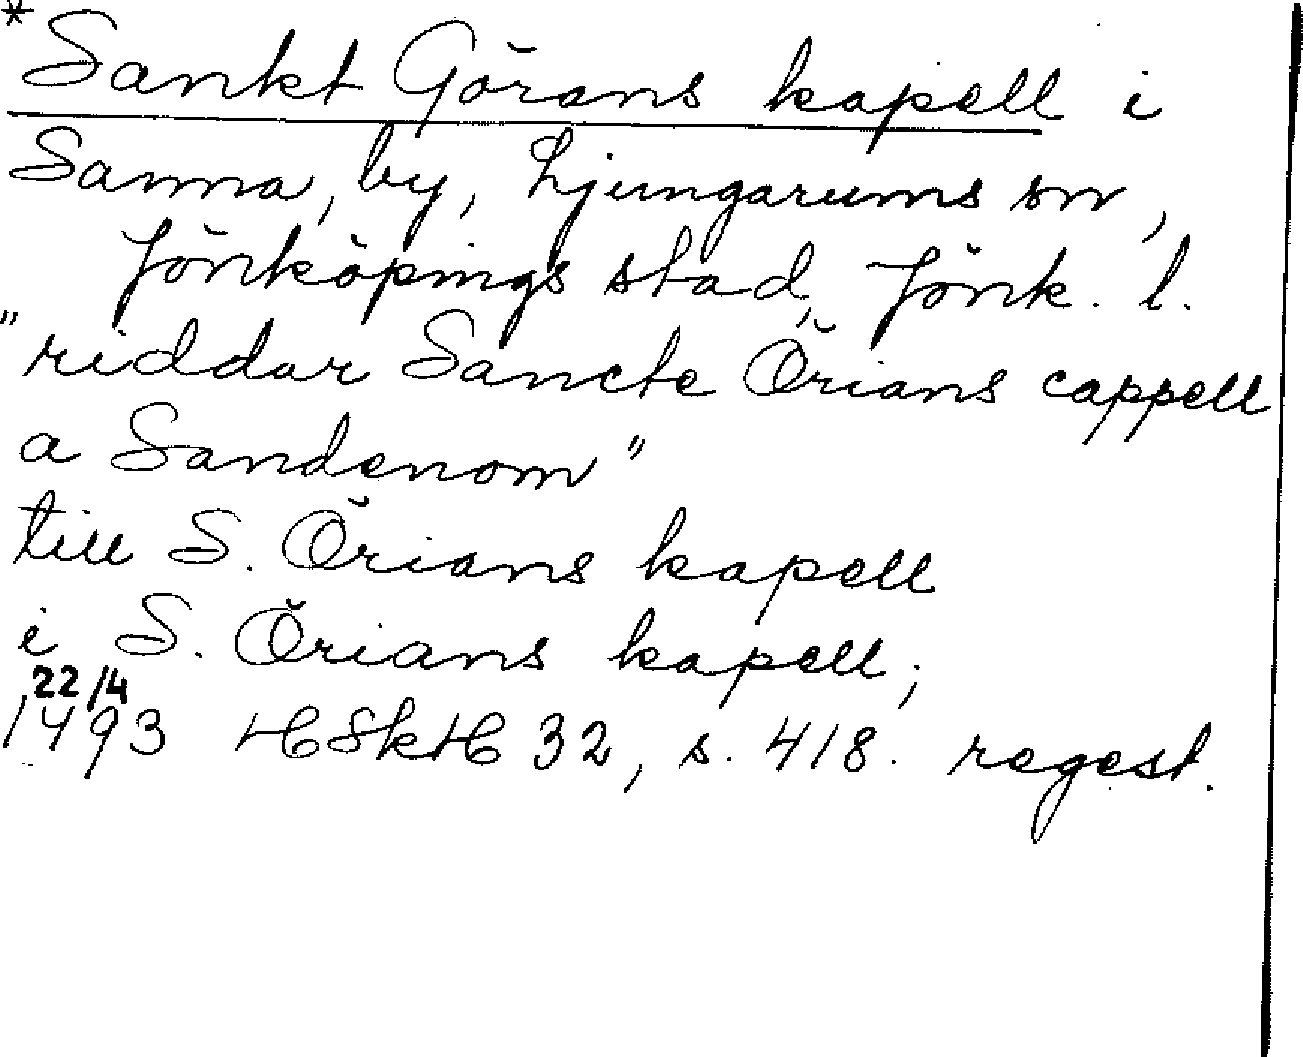 *Sankt Görans kapell i
Sanna, by, Ljungarums sn,
Jönköpings stad, Jönk. l.
"riddar Sancte Örians cappell
a Sandenom"
till S. Örians kapell
i S. Örians kapell,
22/4
1493 HSkH 32, s. 418. regest.